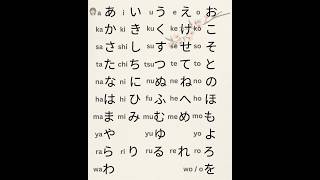 a あ i い u う e え o お
ka か ki き ku く ke け ko こ
sa さ shi し su す se せ so そ
ta た chi ち tsu つ te て to と
na な ni に nu ぬ ne ね no の
ha は hi ひ fu ふ he へ ho ほ
ma ま mi み mu む me め mo も
ya や yu ゆ yo よ
ra ら ri り ru る re れ ro ろ
wa わ wo / o を